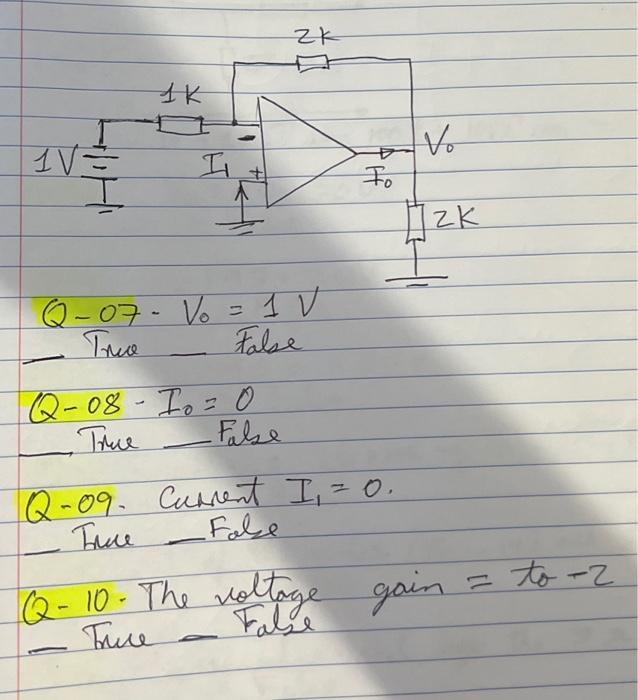 2K
1K
1V
-
I₁ +
I₀
V₀
2K
Q-07- V₀ = 1 V
_ True _ False
Q-08 - I₀ = 0
_ True _ False
Q-09. Current I₁ = 0.
_ True _ False
Q-10. The voltage gain = to -2
_ True _ False